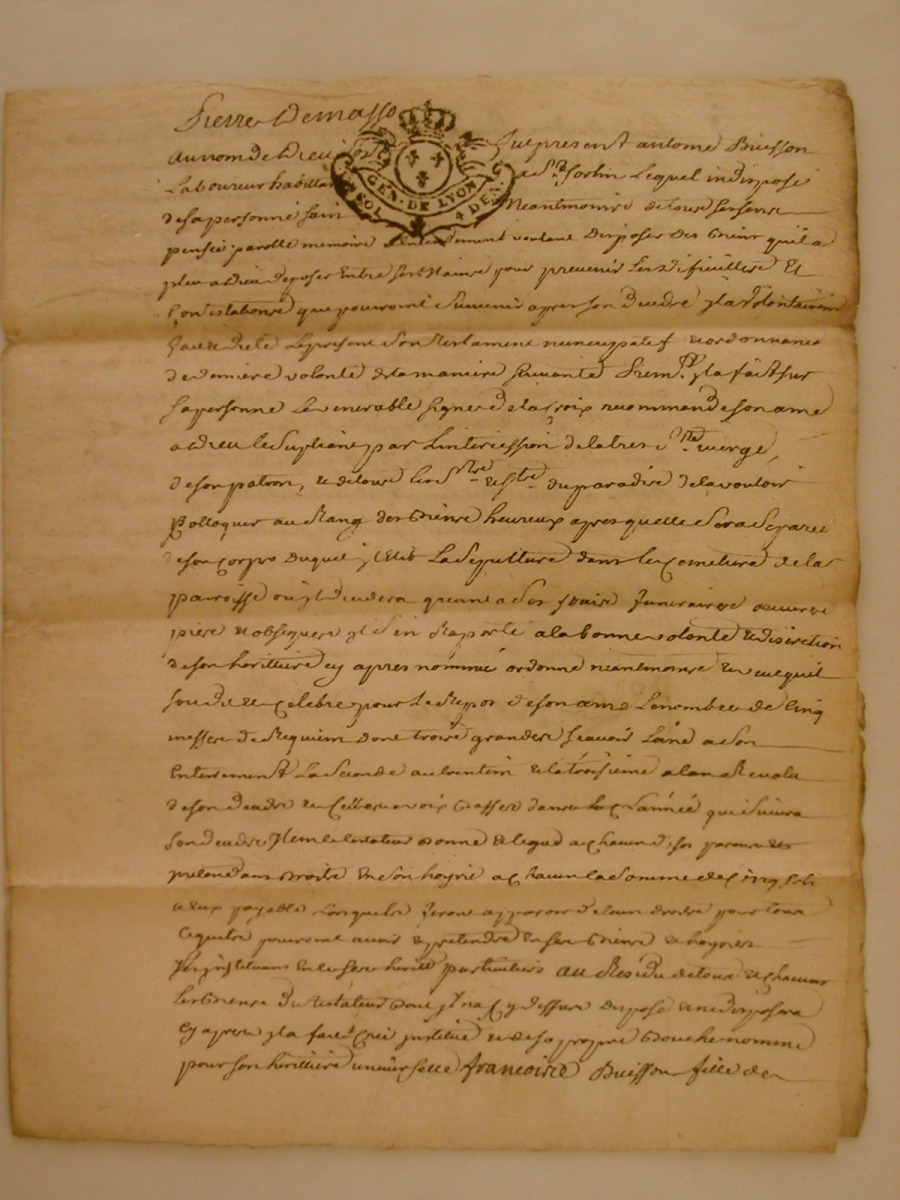 Pierre Demasso
GEN. DE LYON
SOL 4 DEN.
au nom de Dieu fut present antoine Buisson
Laboureur habittant a St Sorlin Lequel indisposé
de sa personne sain Neantmoins de tous ses sens
pensée parolle memoire entendement voulant disposer des biens quil a
pleu a Dieu deposer Entre ses Mains pour prevenir Les dificultes Et
Contestations que pouroint Survenir apres son Deceds yl a Volontairement
fait dicté Le present son testament nuncupatif et ordonnance
de derniere volonté de la maniere suivante Premt yl a fait sur
sa personne Le venerable signe de la Croix recommandé son ame
a dieu le supliant par Lintercession de la tres Ste vierge,
de son patron, et de tous les Sts et Stes du paradis de la vouloir
Colloquer au Rang des Biens heureux apres quelle sera separee
de son Corps duquel yl elit La sepulture dans le Cemetiere de la
paroisse ou yl decedera quant a ses frais funeraires oeuvres
pies et obseques yl s'en Raporte a la bonne volonté et discretion
de son heritiere cy apres nommée ordonne neantmoins et veut quil
soit dit et Celebré pour Le Repos de son ame Le nombre de Cinq
messes de Requiem dont trois grandes scavoir Lune a son
Enterrement La seconde au trentin et la troisieme a lan Revolu
de son deceds et celles a voix Basse dans L'année qui suivra
son deceds Item le testateur donne et legue a chacun de ses parents et
pretendants droits En son hoyrie a chacun la somme de Cinq sols
a eux payable Lorsquils feront apparoir de leurs droits pour tous
Ce quils pouroint avoir et pretendre En ses Biens et hoyries
Les jnstituant En ce ses herittrs particuliers au Residu de tous et chacuns
Les Biens du testateur dont yl na Cy dessus disposé et ne disposera
Cy apres yl a fait Creé jnstitué et de sa propre Bouche nommé
pour son heritiere universelle francoise Buisson fille de